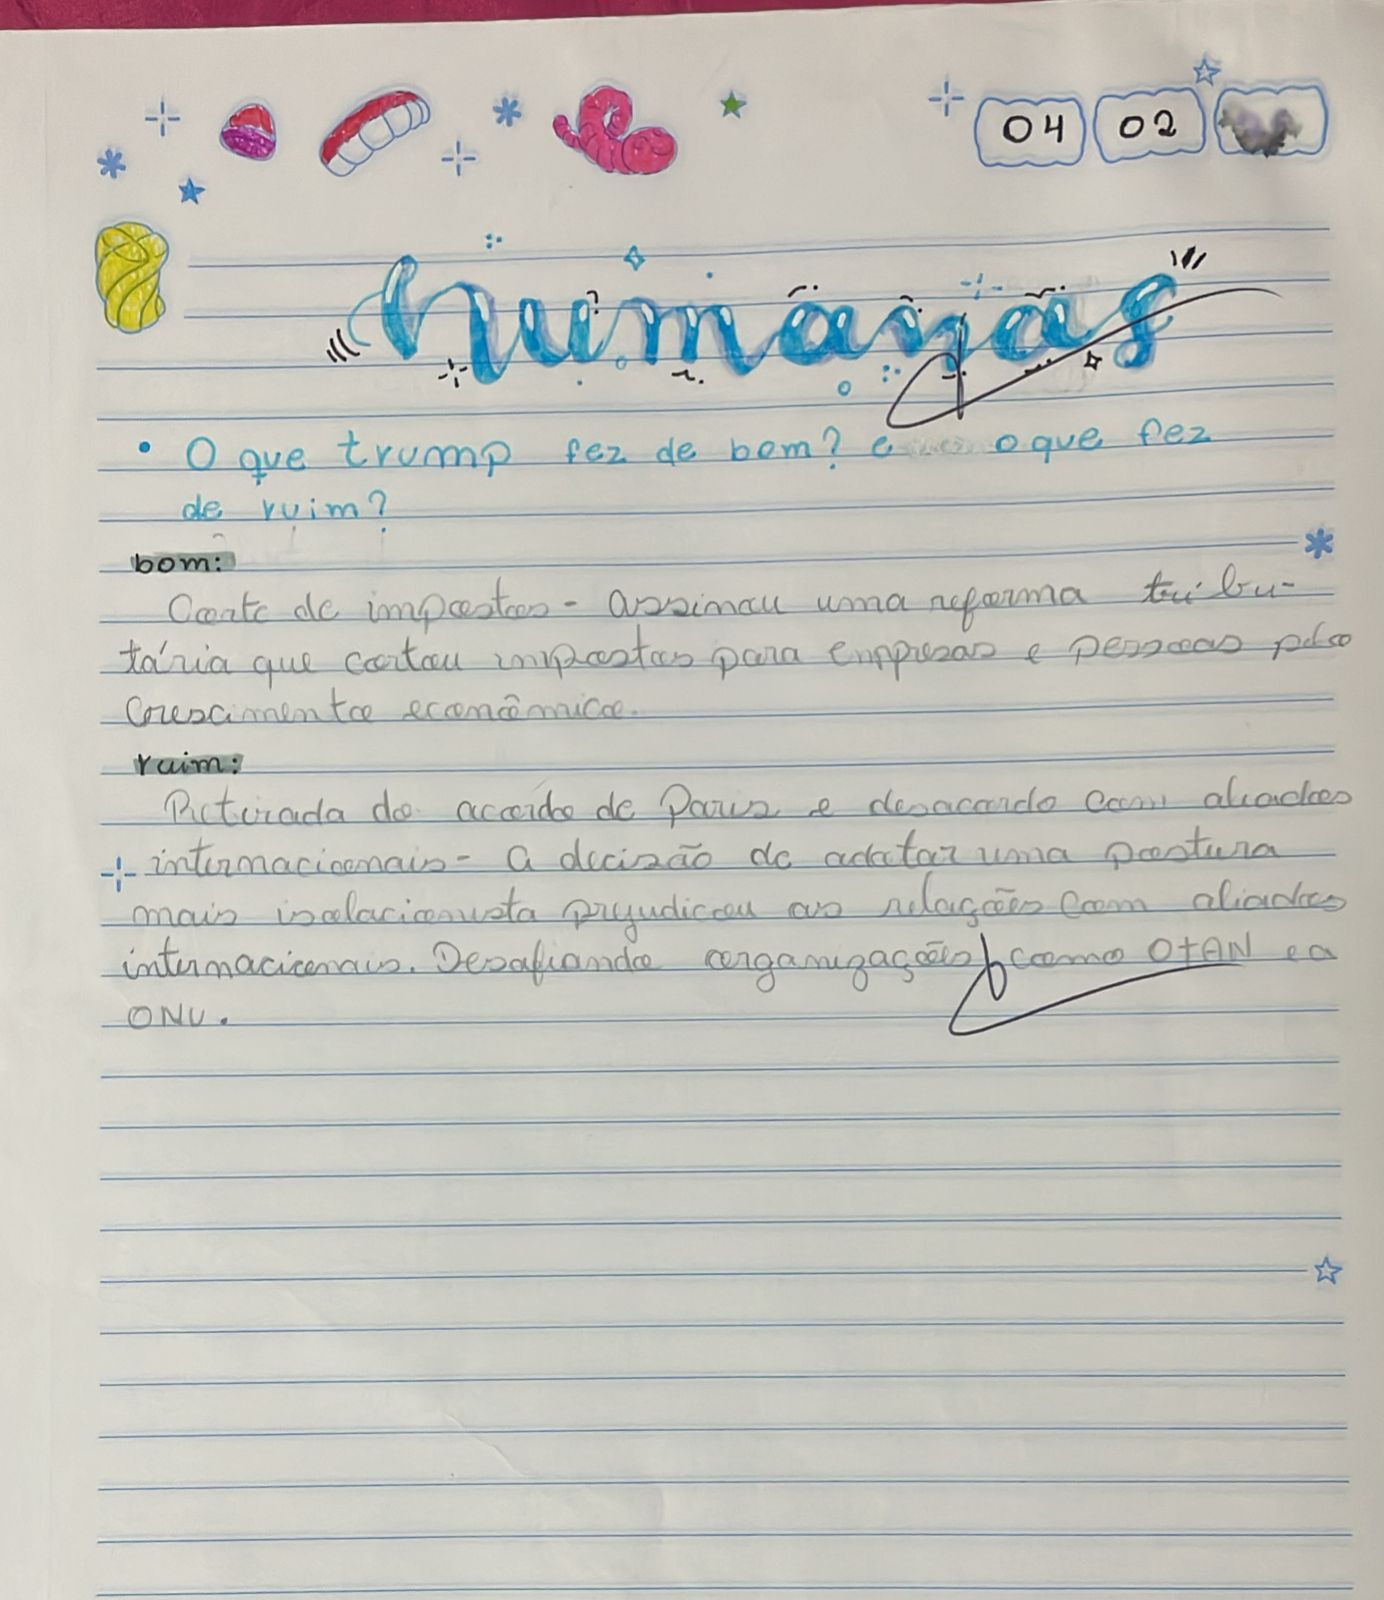 04 02
humanas
• O que trump fez de bom? e o que fez
de ruim?
bom:
Corte de impostos - assinou uma reforma tribu-
tária que cortou impostos para empresas e pessoas pelo
crescimento econômico.
ruim:
Retirada do acordo de Paris e desacordo com aliados
internacionais - A decisão de adotar uma postura
mais isolacionista prejudicou as relações com aliados
internacionais. Desafiando organizações como OTAN e a
ONU.